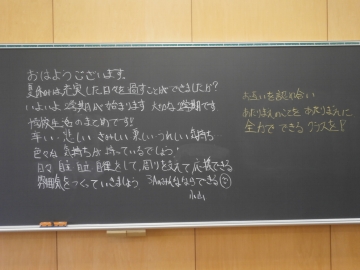 おはようございます。
夏休みは充実した日々を過すことができましたか?
いよいよ2学期が始まります 大切な2学期です
高校生活のまとめです!!
辛い… 悲しい さみしい 楽しい うれしい 気持ち
色々な気持ちが待っているでしょう!
日々 自主 自立 自律として、周りを支えて応援できる
雰囲気をつくっていきましょう 3Aのみんなならできる
お互いを認め合い
あたりまえのことをあたりまえに
全力でできるクラスを!